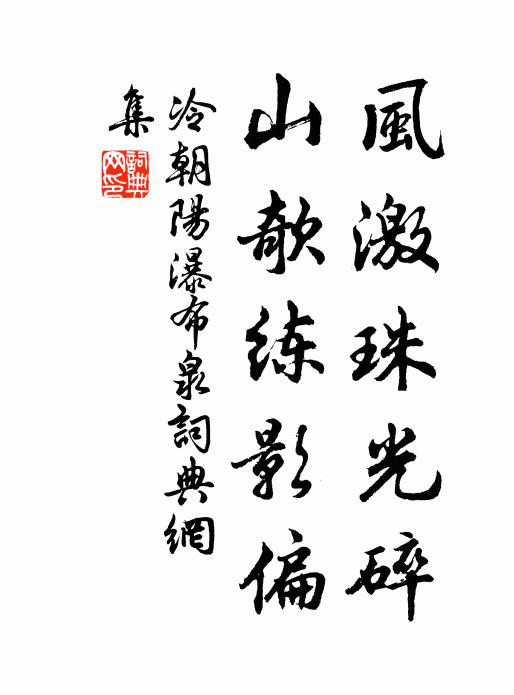 風激珠光碎
山欹練影偏
冷朝陽瀑布泉詞典網
集
詞典
网印